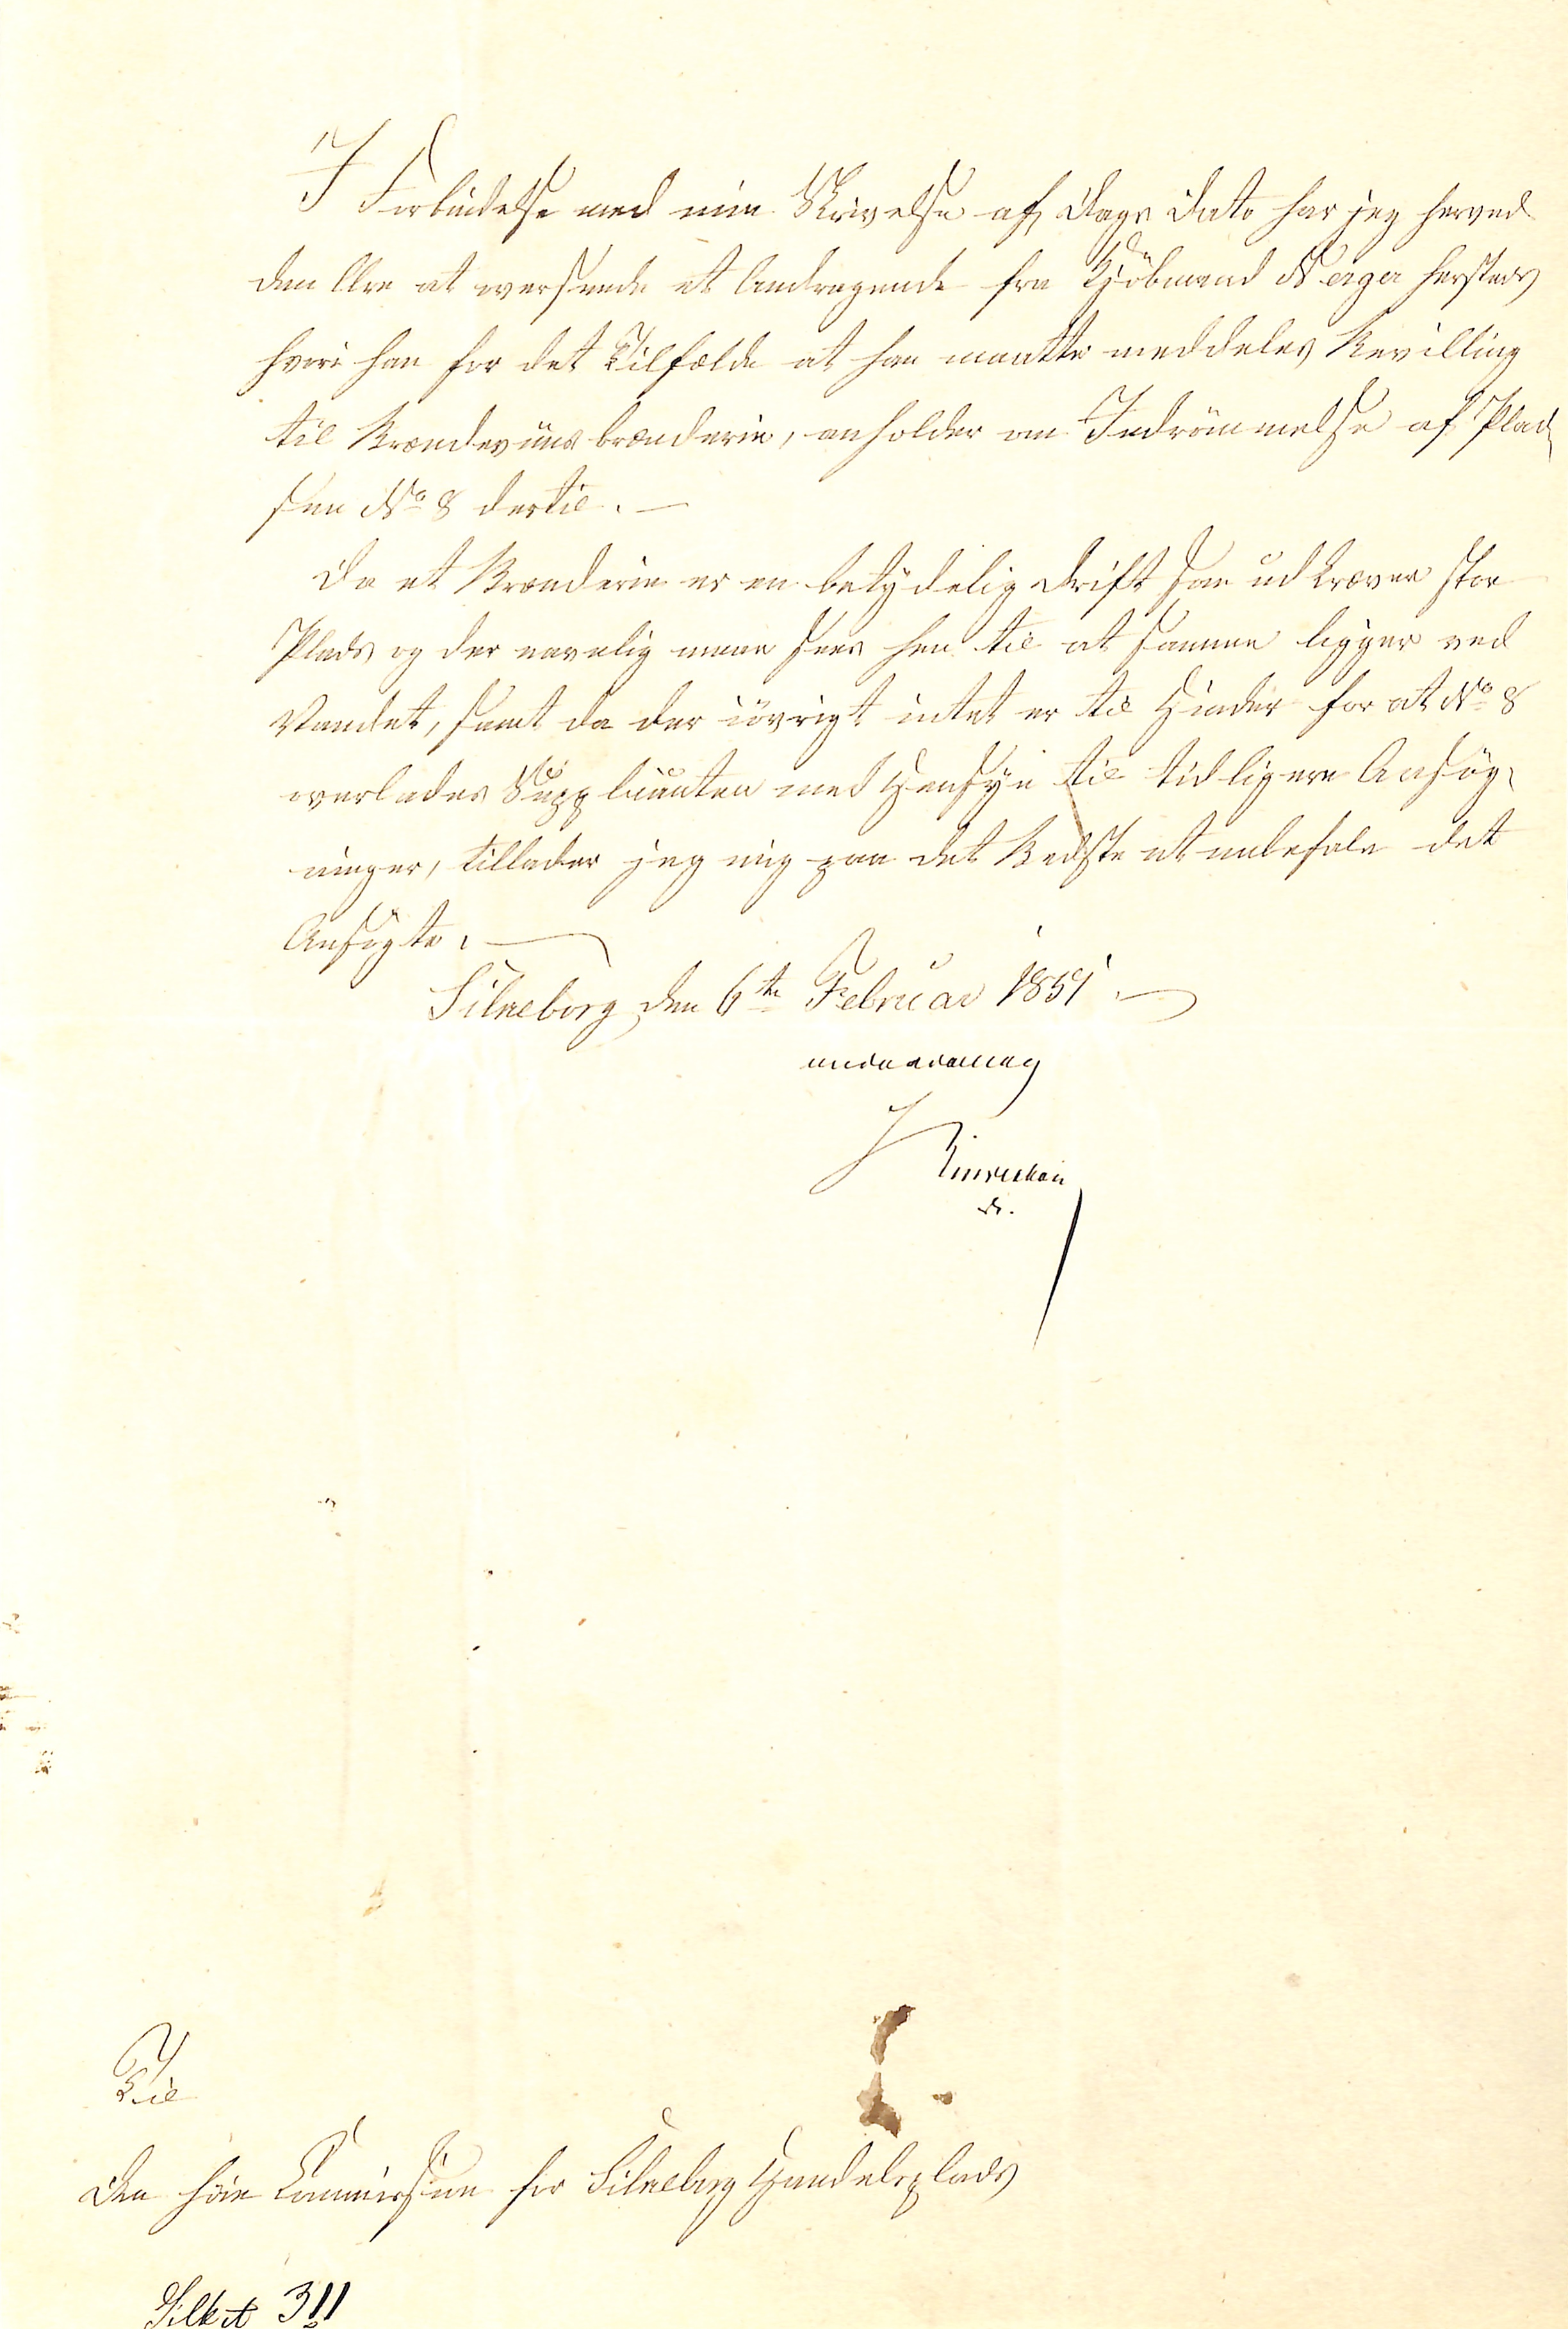 I Forbindelse med min Skrivelse af Dags Dato har jeg herved
den Ære at oversende et Andragende fra Kjöbmand Neiger hersteds
hvori han for det Tilfælde at han maatte meddeles Bevilling
til Brændeviinsbrænderie, anholder om Indrömmelse af Plad
sen No 8 dertil. —
Da et Brænderie er en betydelig Drift som udkræver stor
Plads og der navnlig maae sees hen til at samme ligger ved
Vandet, samt da der iövrigt intet er til Hinder for at No 8
overlades Supplicanten med Hensyn til tidligere Ansög,
ninger, tillader jeg mig paa det Bedste at anbefale det
Ansögte. —
Silkeborg den 6te Februar 1851 —
underdanig
Til
Den höie Commission for Silkeborg Handelsplads
Silk A 311